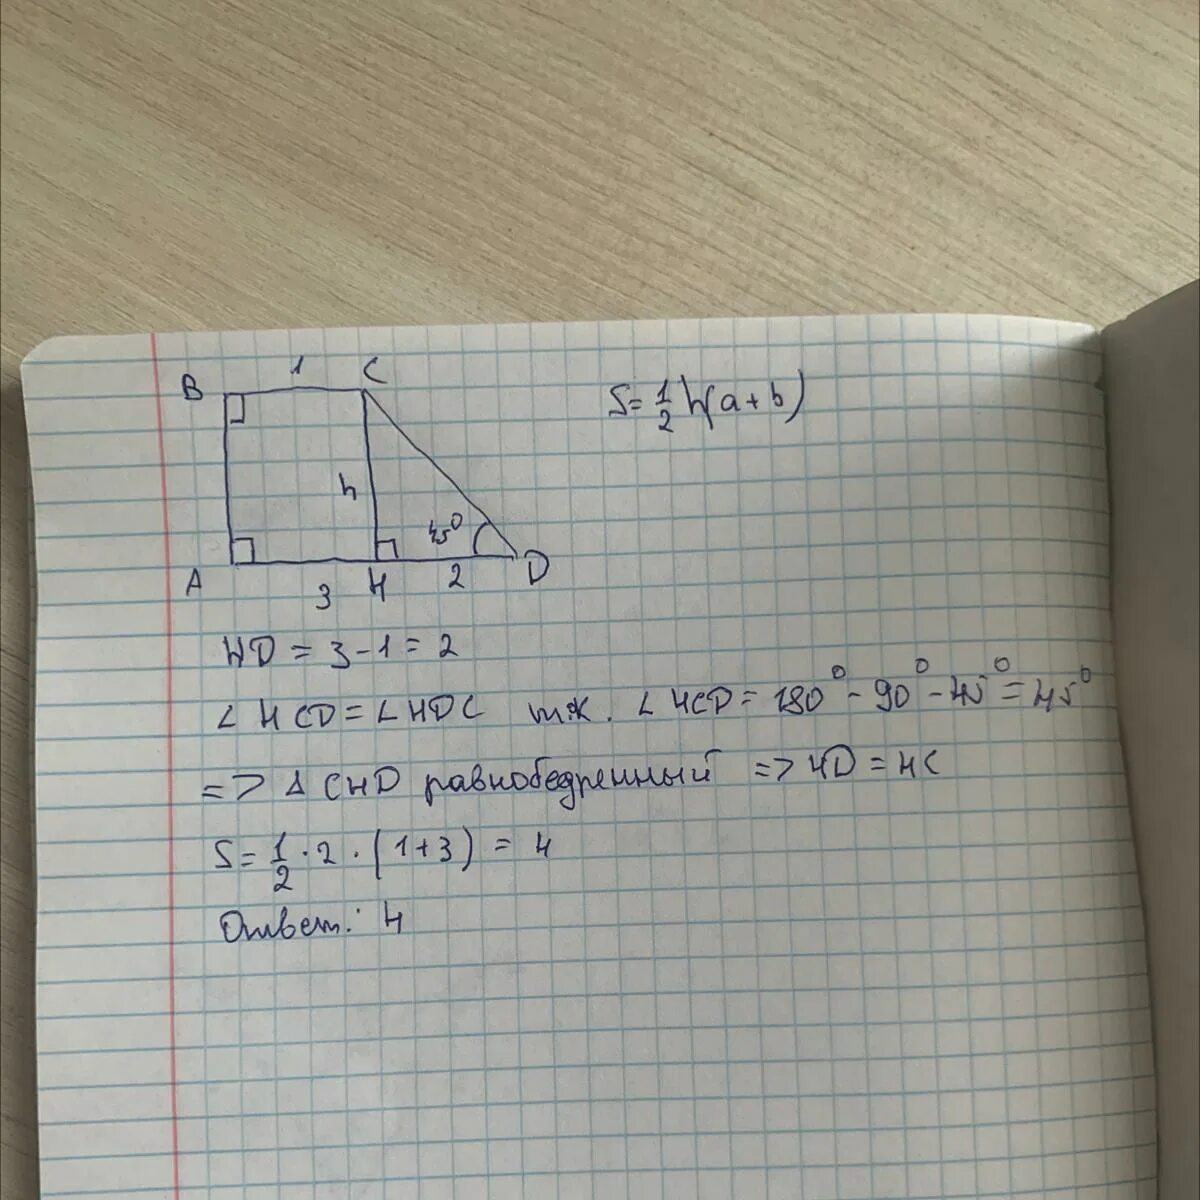 B 1 C
S = 1/2 h(a + b)
h
45°
A 3 H 2 D
HD = 3 - 1 = 2
∠ HCD = ∠ HDC т.к. ∠ HCD = 180° - 90° - 45° = 45°
=> Δ CHD равнобедренный => HD = HC
S = 1/2 · 2 · (1 + 3) = 4
Ответ: 4